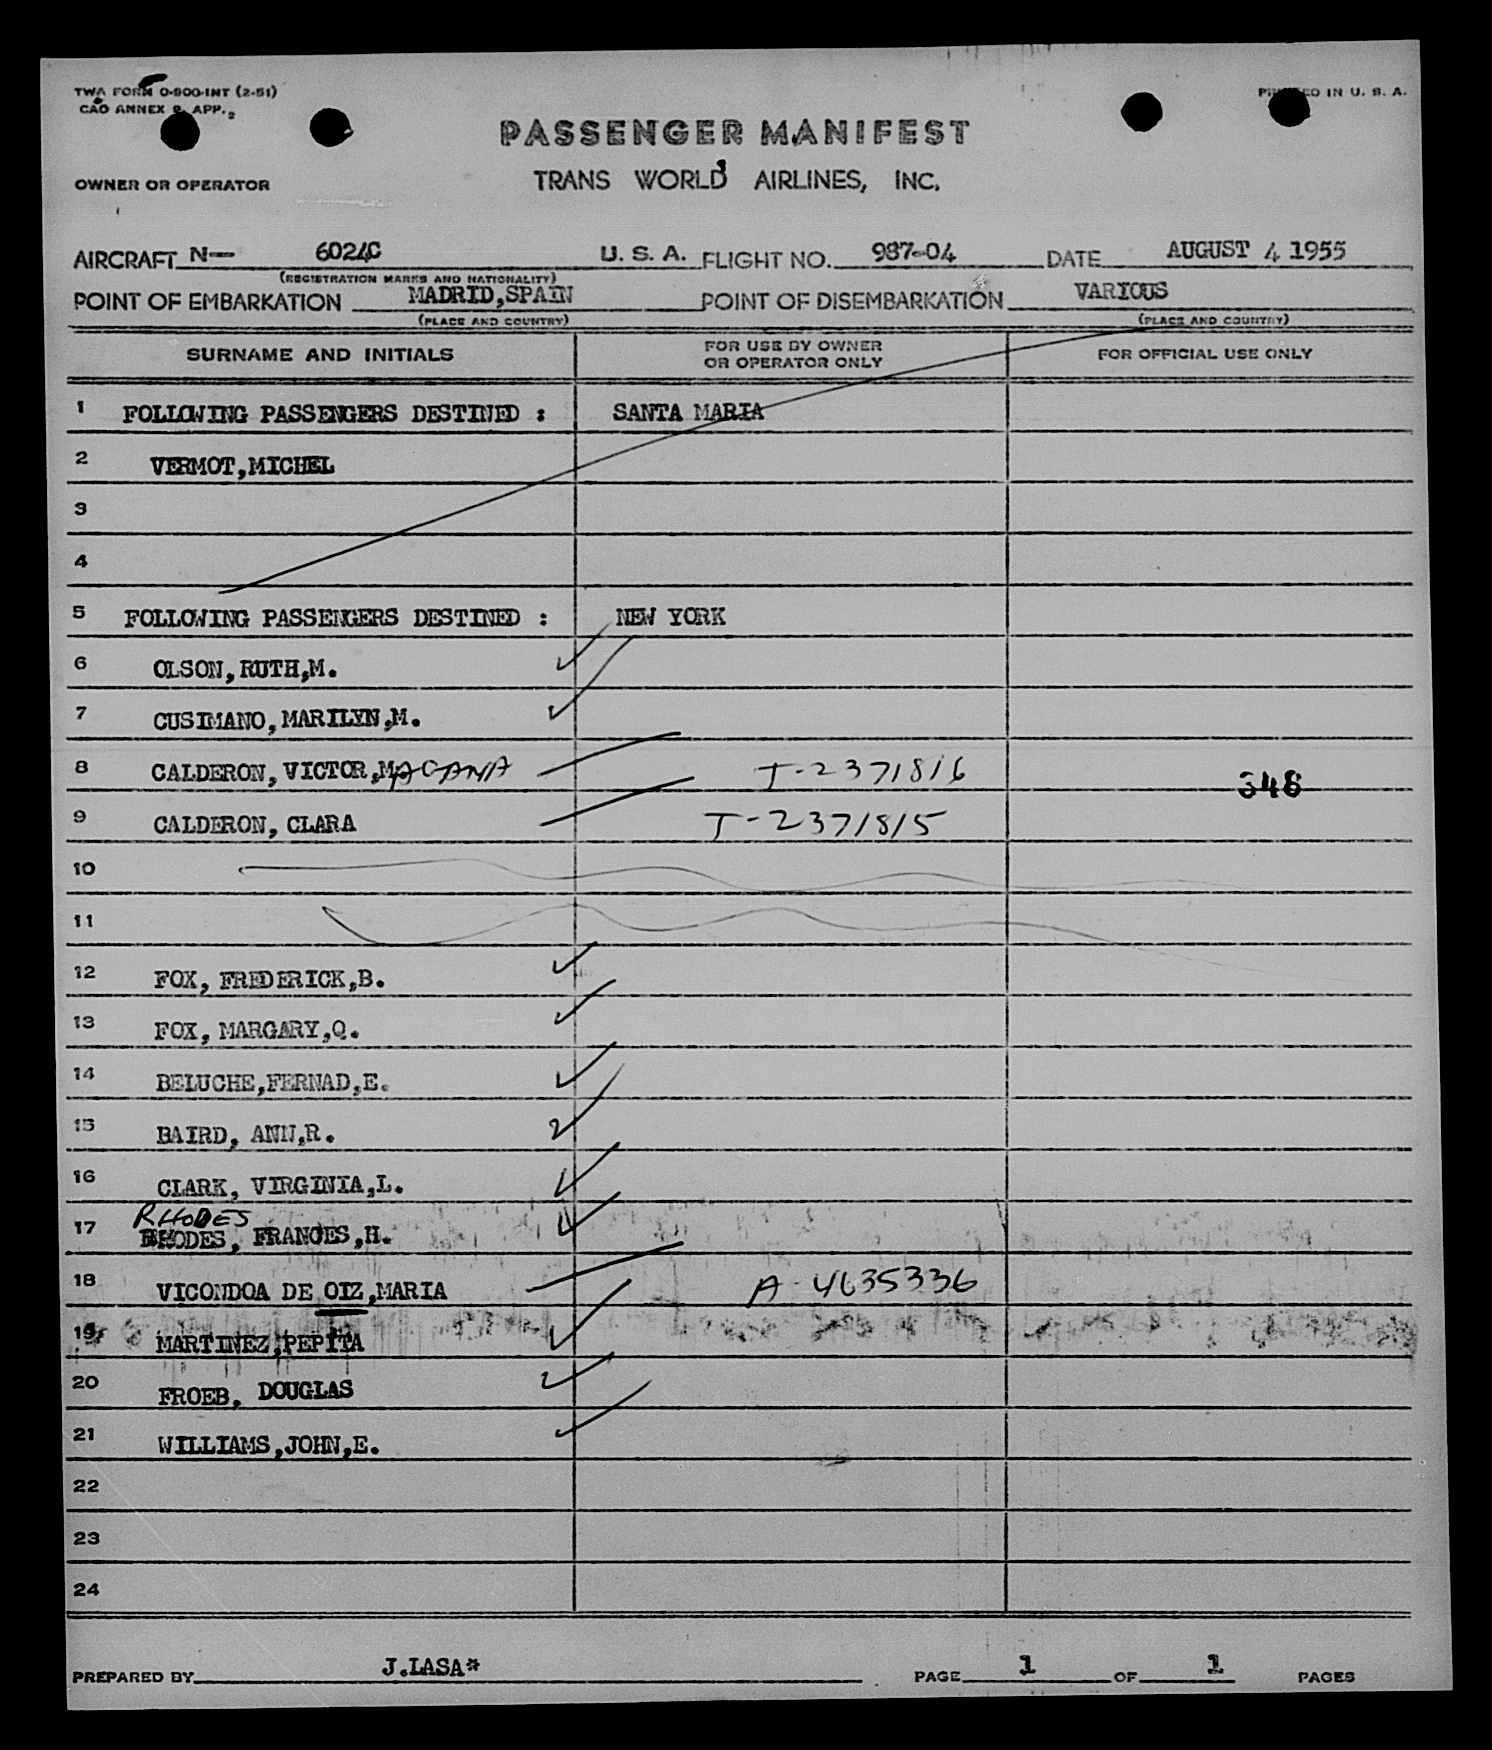 TWA FORM O-800-INT (2-51)
CAO ANNEX 9, APP. 2
PRINTED IN U. S. A.
PASSENGER MANIFEST
OWNER OR OPERATOR TRANS WORLD AIRLINES, INC.
AIRCRAFT N— 6024C U. S. A. FLIGHT NO. 987-04 DATE AUGUST 4 1955
(REGISTRATION MARKS AND NATIONALITY)
POINT OF EMBARKATION MADRID,SPAIN POINT OF DISEMBARKATION VARIOUS
(PLACE AND COUNTRY) (PLACE AND COUNTRY)
SURNAME AND INITIALS FOR USE BY OWNER OR OPERATOR ONLY FOR OFFICIAL USE ONLY
1 FOLLOWING PASSENGERS DESTINED : SANTA MARIA
2 VERMOT,MICHEL
3
4
5 FOLLOWING PASSENGERS DESTINED : NEW YORK
6 OLSON,RUTH,M.
7 CUSIMANO,MARILYN,M.
8 CALDERON,VICTOR,MACANA T-2371816 348
9 CALDERON, CLARA T-2371815
10
11
12 FOX, FREDERICK,B.
13 FOX, MARGARY,Q.
14 BELUCHE,FERNAD,E.
15 BAIRD, ANN,R.
16 CLARK, VIRGINIA,L.
RHODES
17 RHODES, FRANCES,H.
18 VICONDOA DE OIZ,MARIA A-4635336
19 MARTINEZ,PEPITA
20 FROEB, DOUGLAS
21 WILLIAMS,JOHN,E.
22
23
24
PREPARED BY J.LASA* PAGE 1 OF 1 PAGES